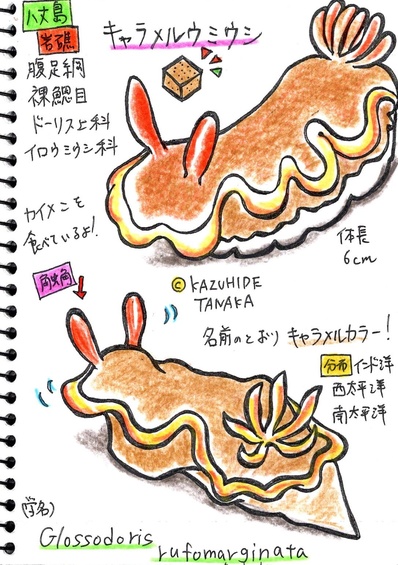 八丈島
キャラメルウミウシ
岩礁
腹足綱
裸鰓目
ドーリス上科
イロウミウシ科
カイメンを
食べているよ!
体長
6cm
触角
© KAZUHIDE
TANAKA
名前のとおり キャラメルカラー!
分布 インド洋
西太平洋
南太平洋
(学名)
Glossodoris
rufomarginata